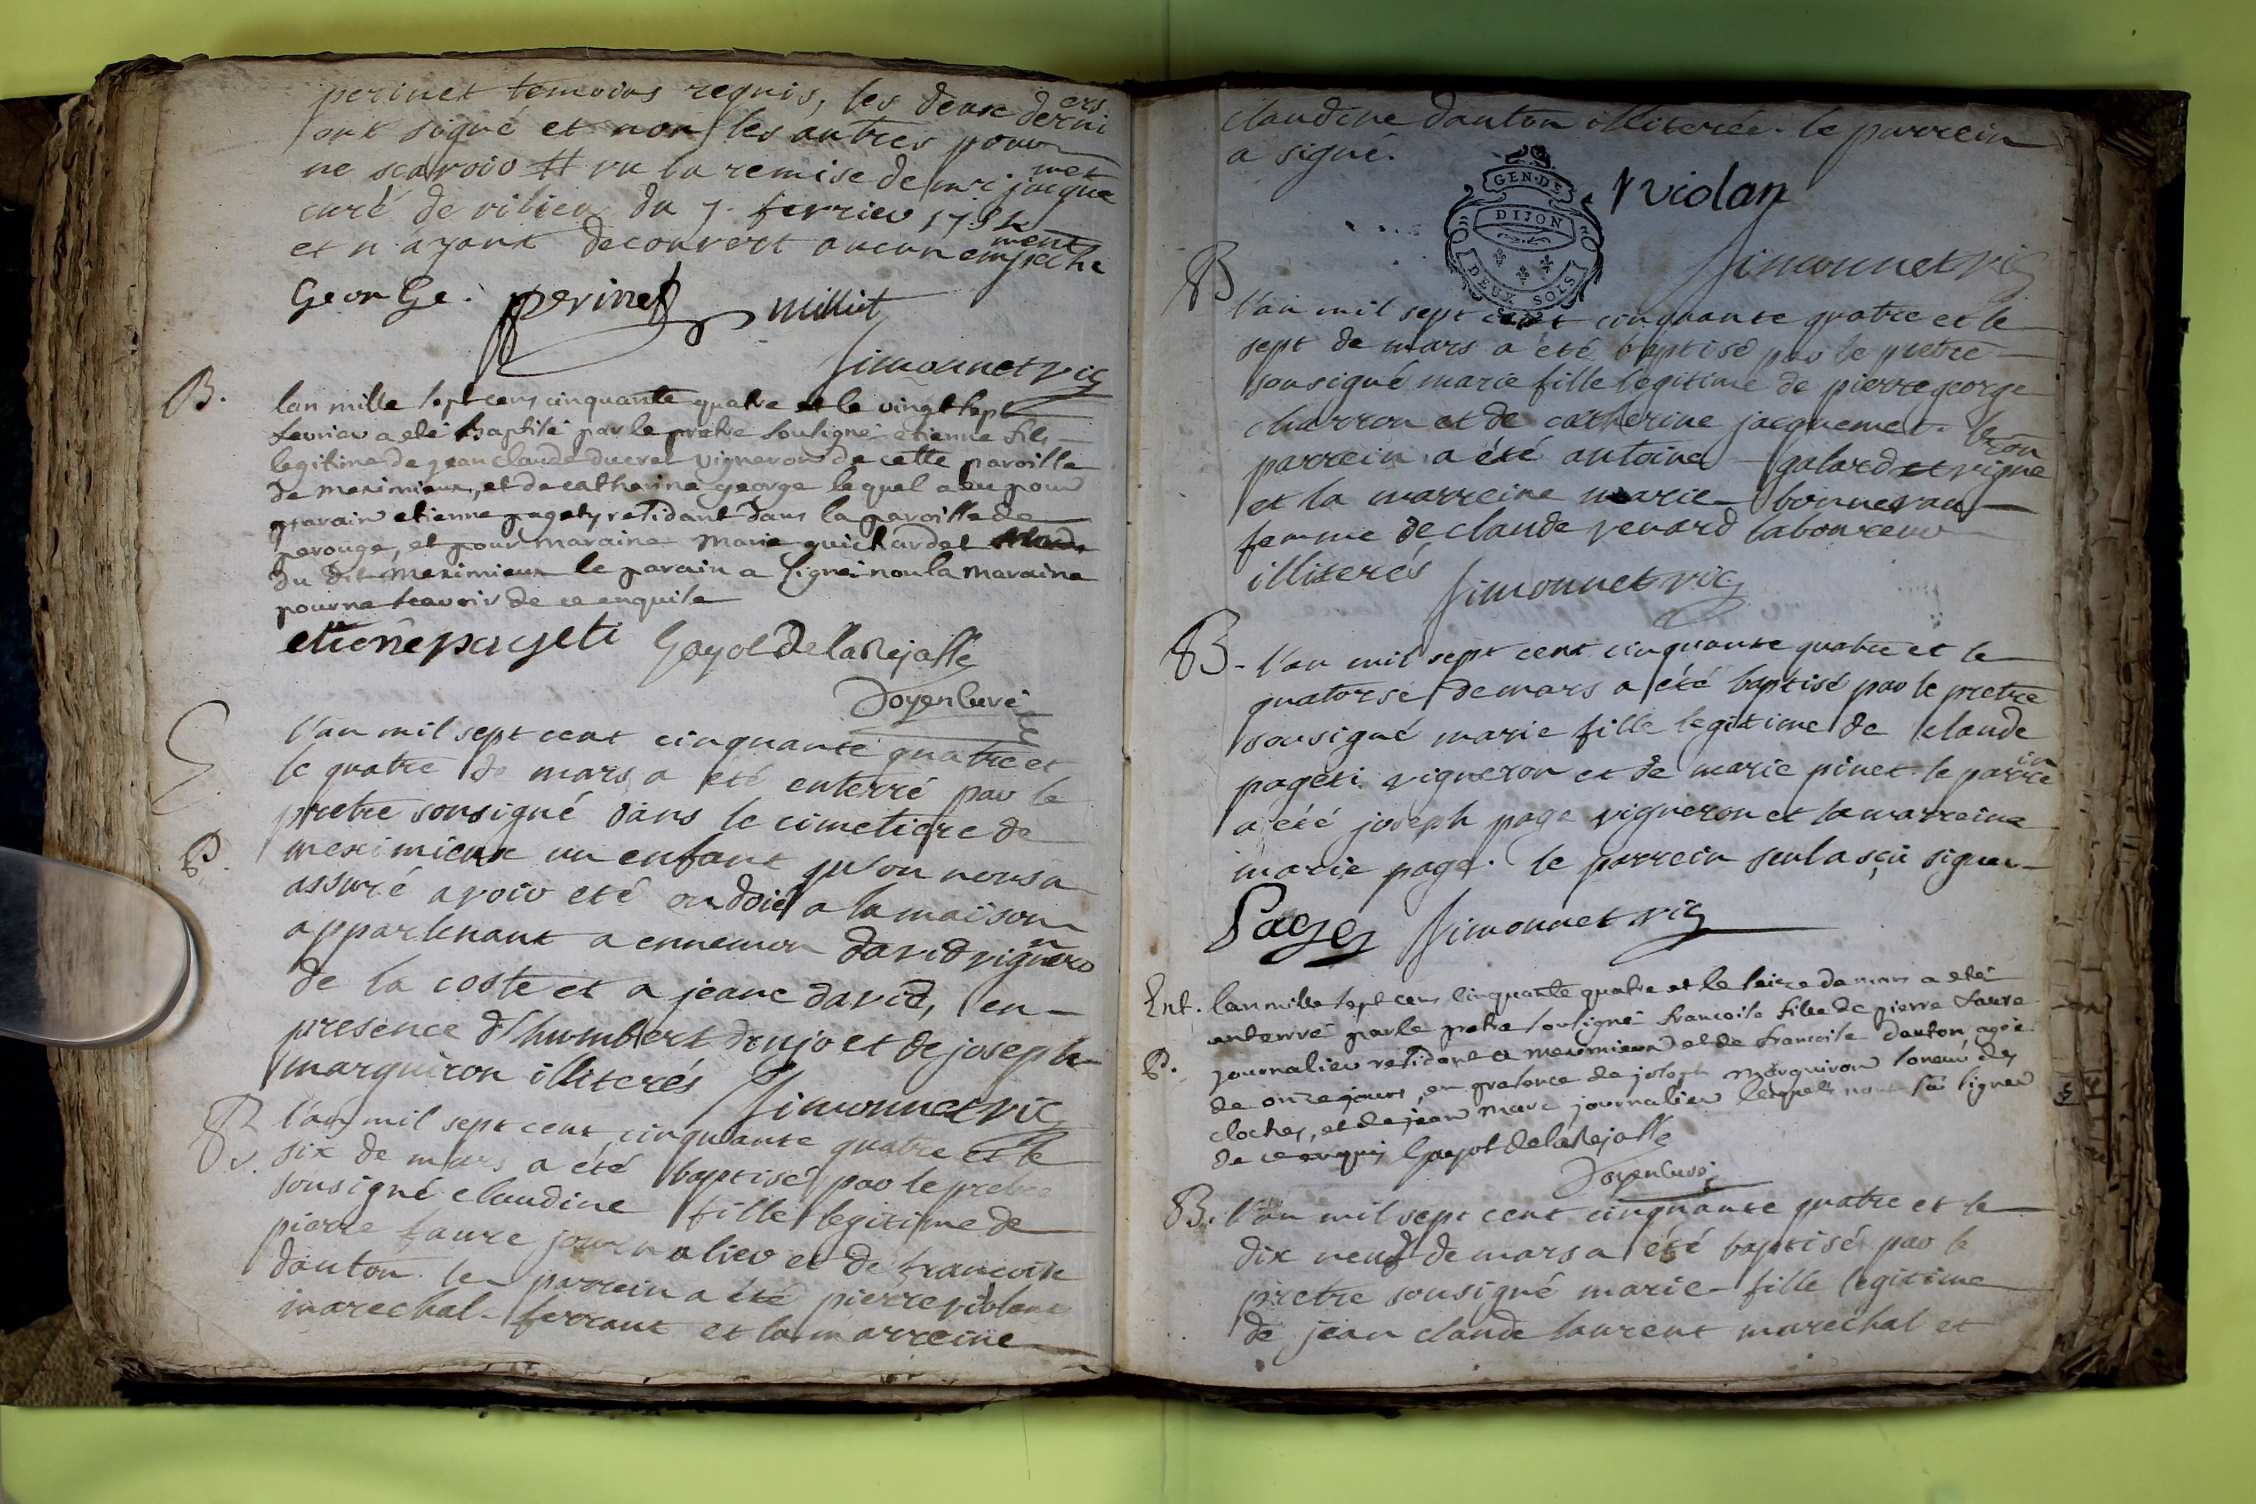 perinet temoins requis, les deux derni ers
ont signé et non les autres pour
ne scavoir # vu la remise de mr jacque met
curé de vilieu du 7. fevrier 1754
et n'ayant decouvert aucun empeche ment
George. perinet milliet
Simonnet vic
B. lan mille sept cens cinquante quatre et le vingt sept
fevrier a eté baptisé par le pretre sousigné etienne fils
legitime de jean claude ducret vigneron de cette paroisse
de meximieux, et de catherine george lequel a eu pour
parain etienne pagety residant dans la paroisse de
perouge, et pour maraine marie guichardet
du dit meximieux le parain a signé non la maraine
pour ne scavoir de ce enquise
etiene pageti Gayot de la Rejasse
Doyen Curé
E l'an mil sept cent cinquante quatre et
le quatre de mars a eté enterré par le
pretre sousigné dans le cimetiere de
P. meximieux un enfant qu'on nous a
assuré avoir eté ondoié a la maison
appartenant a ennemon david vignero n
de la coste et a jeane david, en
presence d'humbert donjo et de joseph
marguiron illiterés Simonnet vic
B l'an mil sept cent cinquante quatre et le
v. six de mars a été baptisé par le pretre
sousigné claudine fille legitime de
pierre faure journalier et de francoise
danton. le parrein a été pierre violant
marechal ferrant et la marreine
claudine danton illiterée. le parrein
a signé.
GEN. DE
DIJON
DEUX SOLS
violan
Simonnet vic
B l'an mil sept cent cinquante quatre et le
sept de mars a été baptisé par le pretre
sousigné marie fille legitime de pierre george
charron et de catherine jacquemet. le
parrein a été antoine galard vigne ron
et la marreine marie bonnevau
femme de claude venard laboureur
illiterés Simonnet vic
B. l'an mil sept cent cinquante quatre et le
quatorse de mars a été baptisé par le pretre
sousigné marie fille legitime de claude
pageti vigneron et de marie pinet. le parre in
a été joseph page vigneron et la marreine
marie page. le parrein seul a sçu signer
Page Simonnet vic
Ent. lan mille sept cens cinquante quatre et le seize de mars a eté
enterré par le pretre sousigné francoise fille de pierre faure
P. journalier residant a meximieux et de francoise danton agée
de onze jours, en presence de joseph marguiron soneur des
cloches, et de jean marc journalier lesquels nont sai signer
de ce enquis Gayot de la Rejasse
Doyen Curé
B. l'an mil sept cent cinquante quatre et le
dix neuf de mars a été baptisé par le
pretre sousigné marie fille legitime
de jean claude laurent marechal et